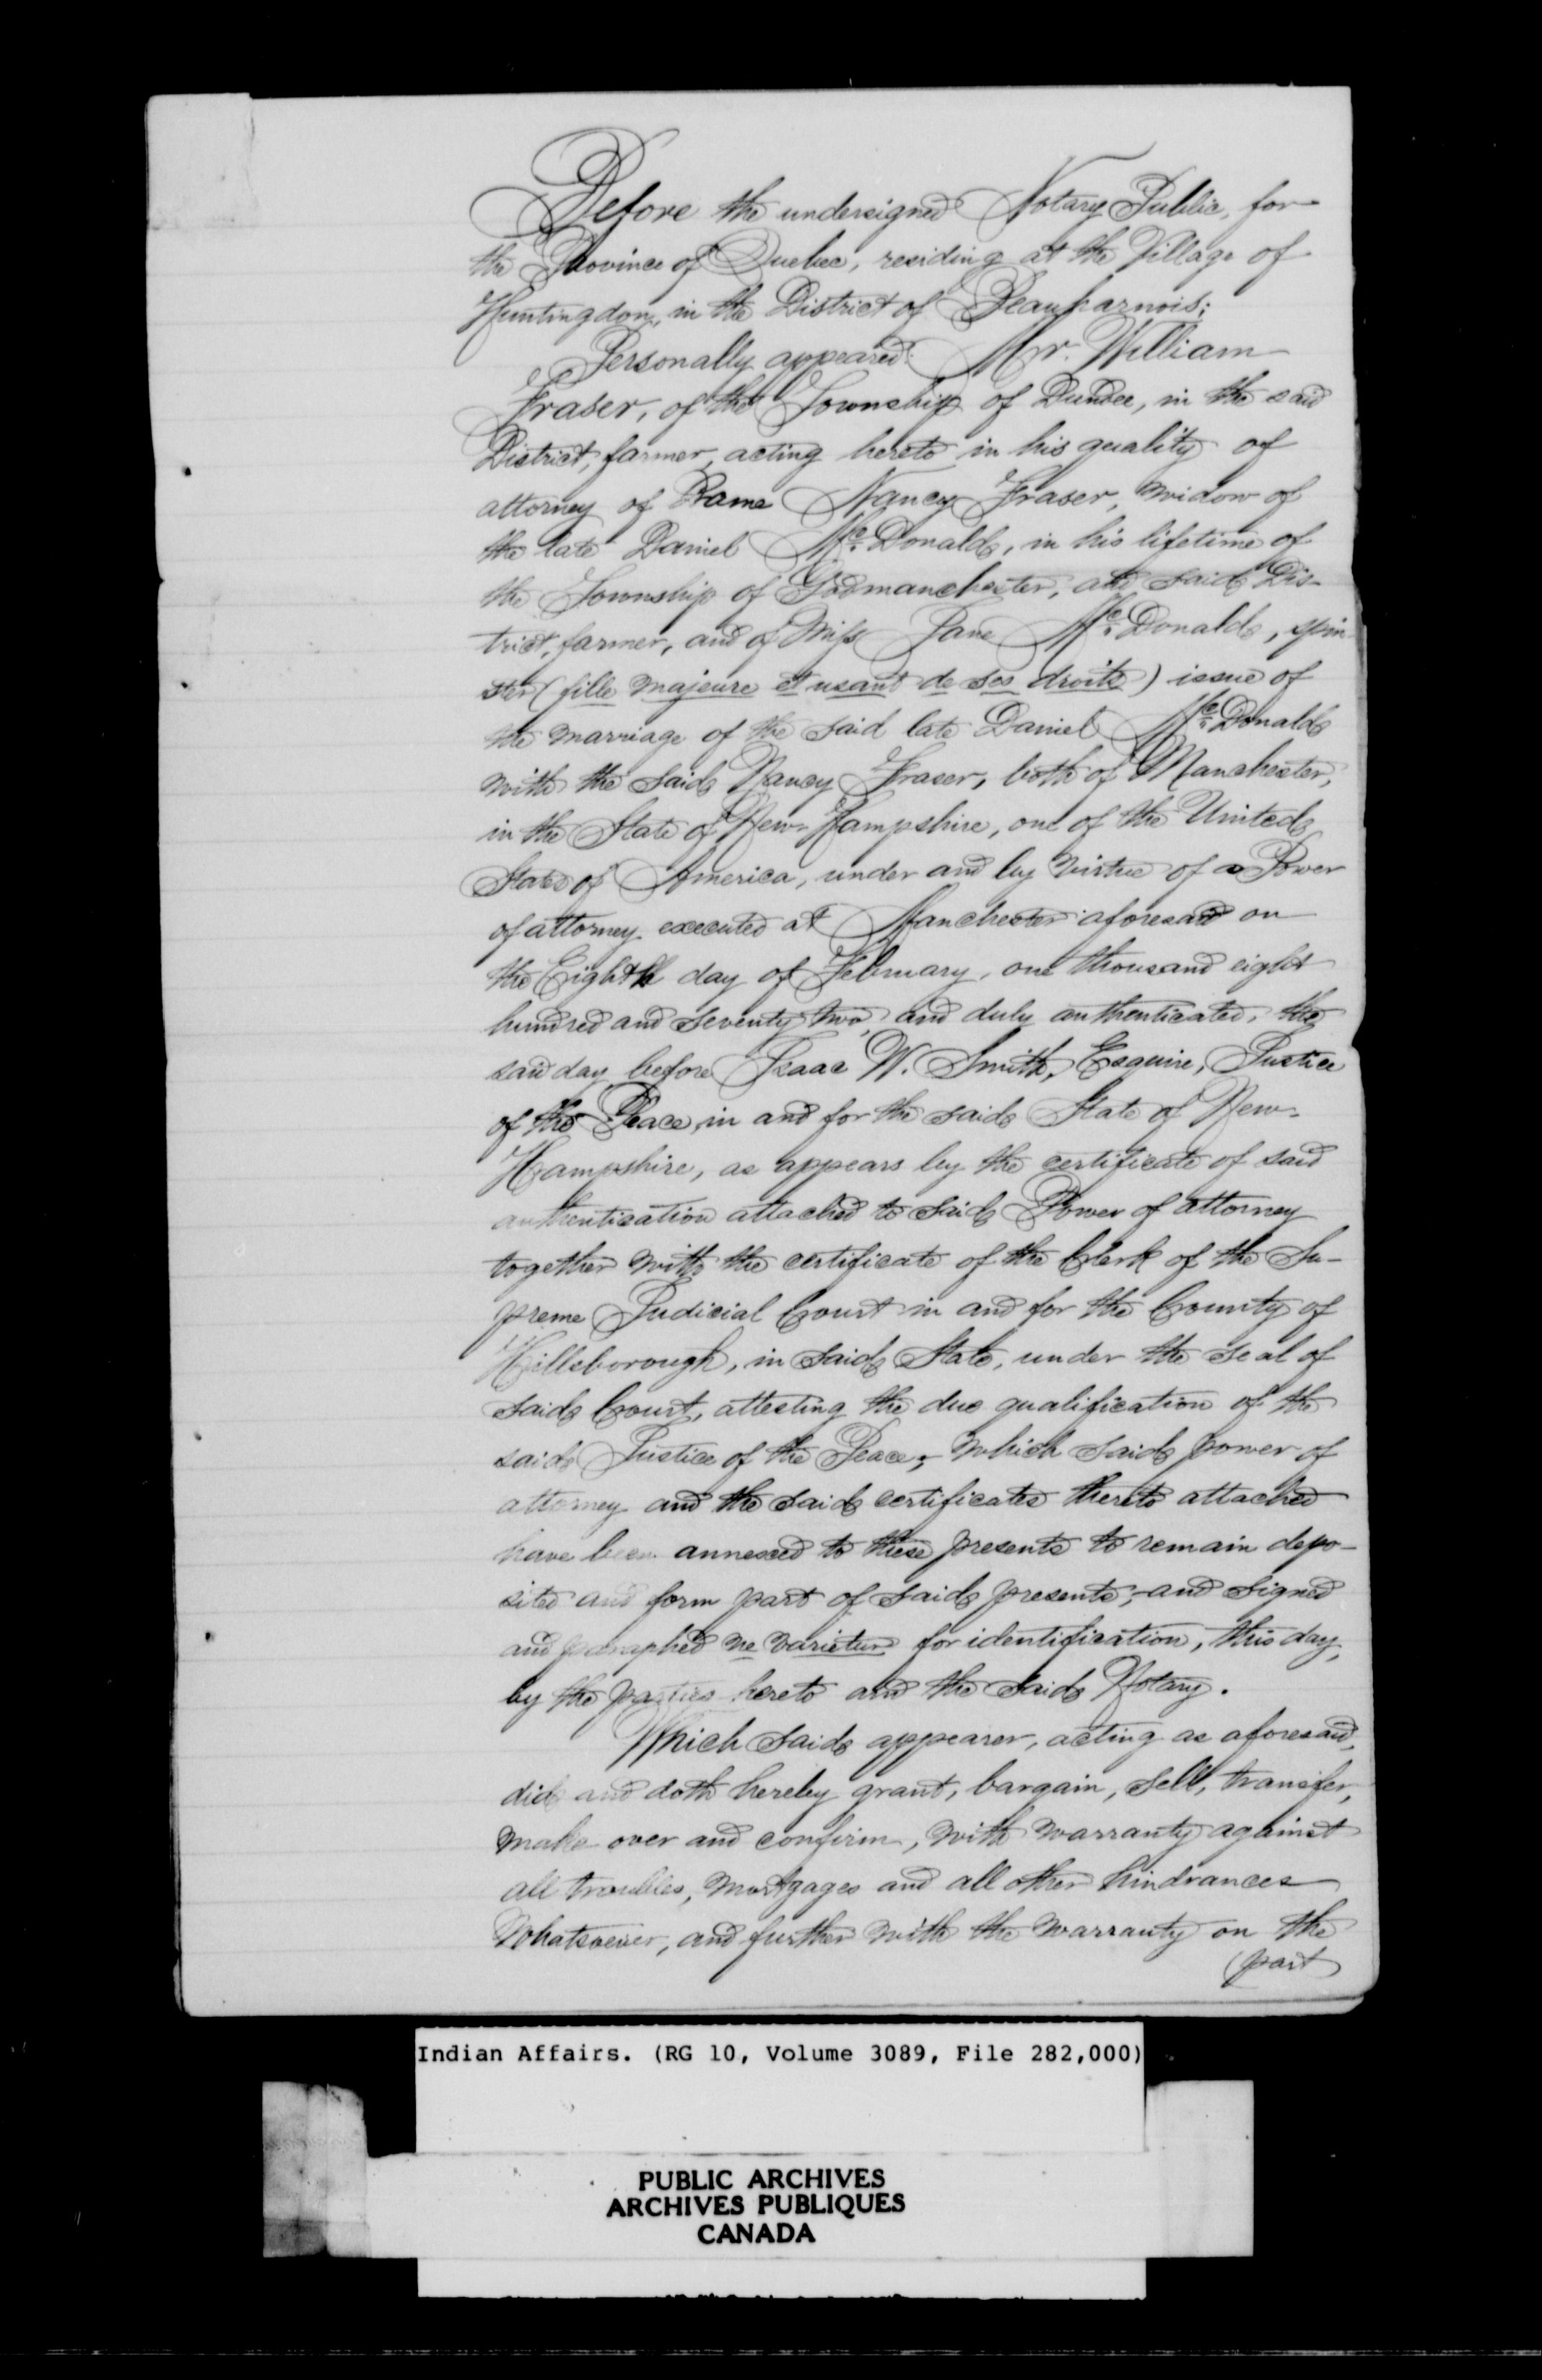 Before the undersigned Notary Public, for
the Province of Quebec, residing at the Village of
Huntingdon, in the District of Beauharnois;
Personally appeared: Mr. William
Fraser, of the Township of Dundee, in the said
District, farmer, acting hereto in his quality of
attorney of Dame Nancy Fraser, widow of
the late Daniel McDonald, in his lifetime of
the Township of Godmanchester, and said Dis-
trict, farmer, and of Miss Jane McDonald, spin-
ster (fille majeure et usant de ses droits) issue of
the marriage of the said late Daniel McDonald
with the said Nancy Fraser, both of Manchester,
in the State of New-Hampshire, one of the United
States of America, under and by virtue of a Power
of attorney executed at Manchester aforesaid on
the Eighth day of February, one thousand eight
hundred and seventy two, and duly authenticated, the
said day before Isaac W. Smith, Esquire, Justice
of the Peace, in and for the said State of New-
Hampshire, as appears by the certificate of said
authentication attached to said Power of attorney
together with the certificate of the Clerk of the Su-
preme Judicial Court in and for the County of
Hillsborough, in said State, under the seal of
said Court, attesting the due qualification of the
said Justice of the Peace; which said power of
attorney and the said certificates thereto attached
have been annexed to these presents to remain depo-
sited and form part of said presents; and signed
and paraphed ne varietur for identification, this day,
by the parties hereto and the said Notary.
Which said appearer, acting as aforesaid,
did and doth hereby grant, bargain, sell, transfer,
make over and confirm, with warranty against
all troubles, mortgages and all other hindrances
Whatsoever, and further with the warranty on the
(part
Indian Affairs. (RG 10, Volume 3089, File 282,000)
PUBLIC ARCHIVES
ARCHIVES PUBLIQUES
CANADA